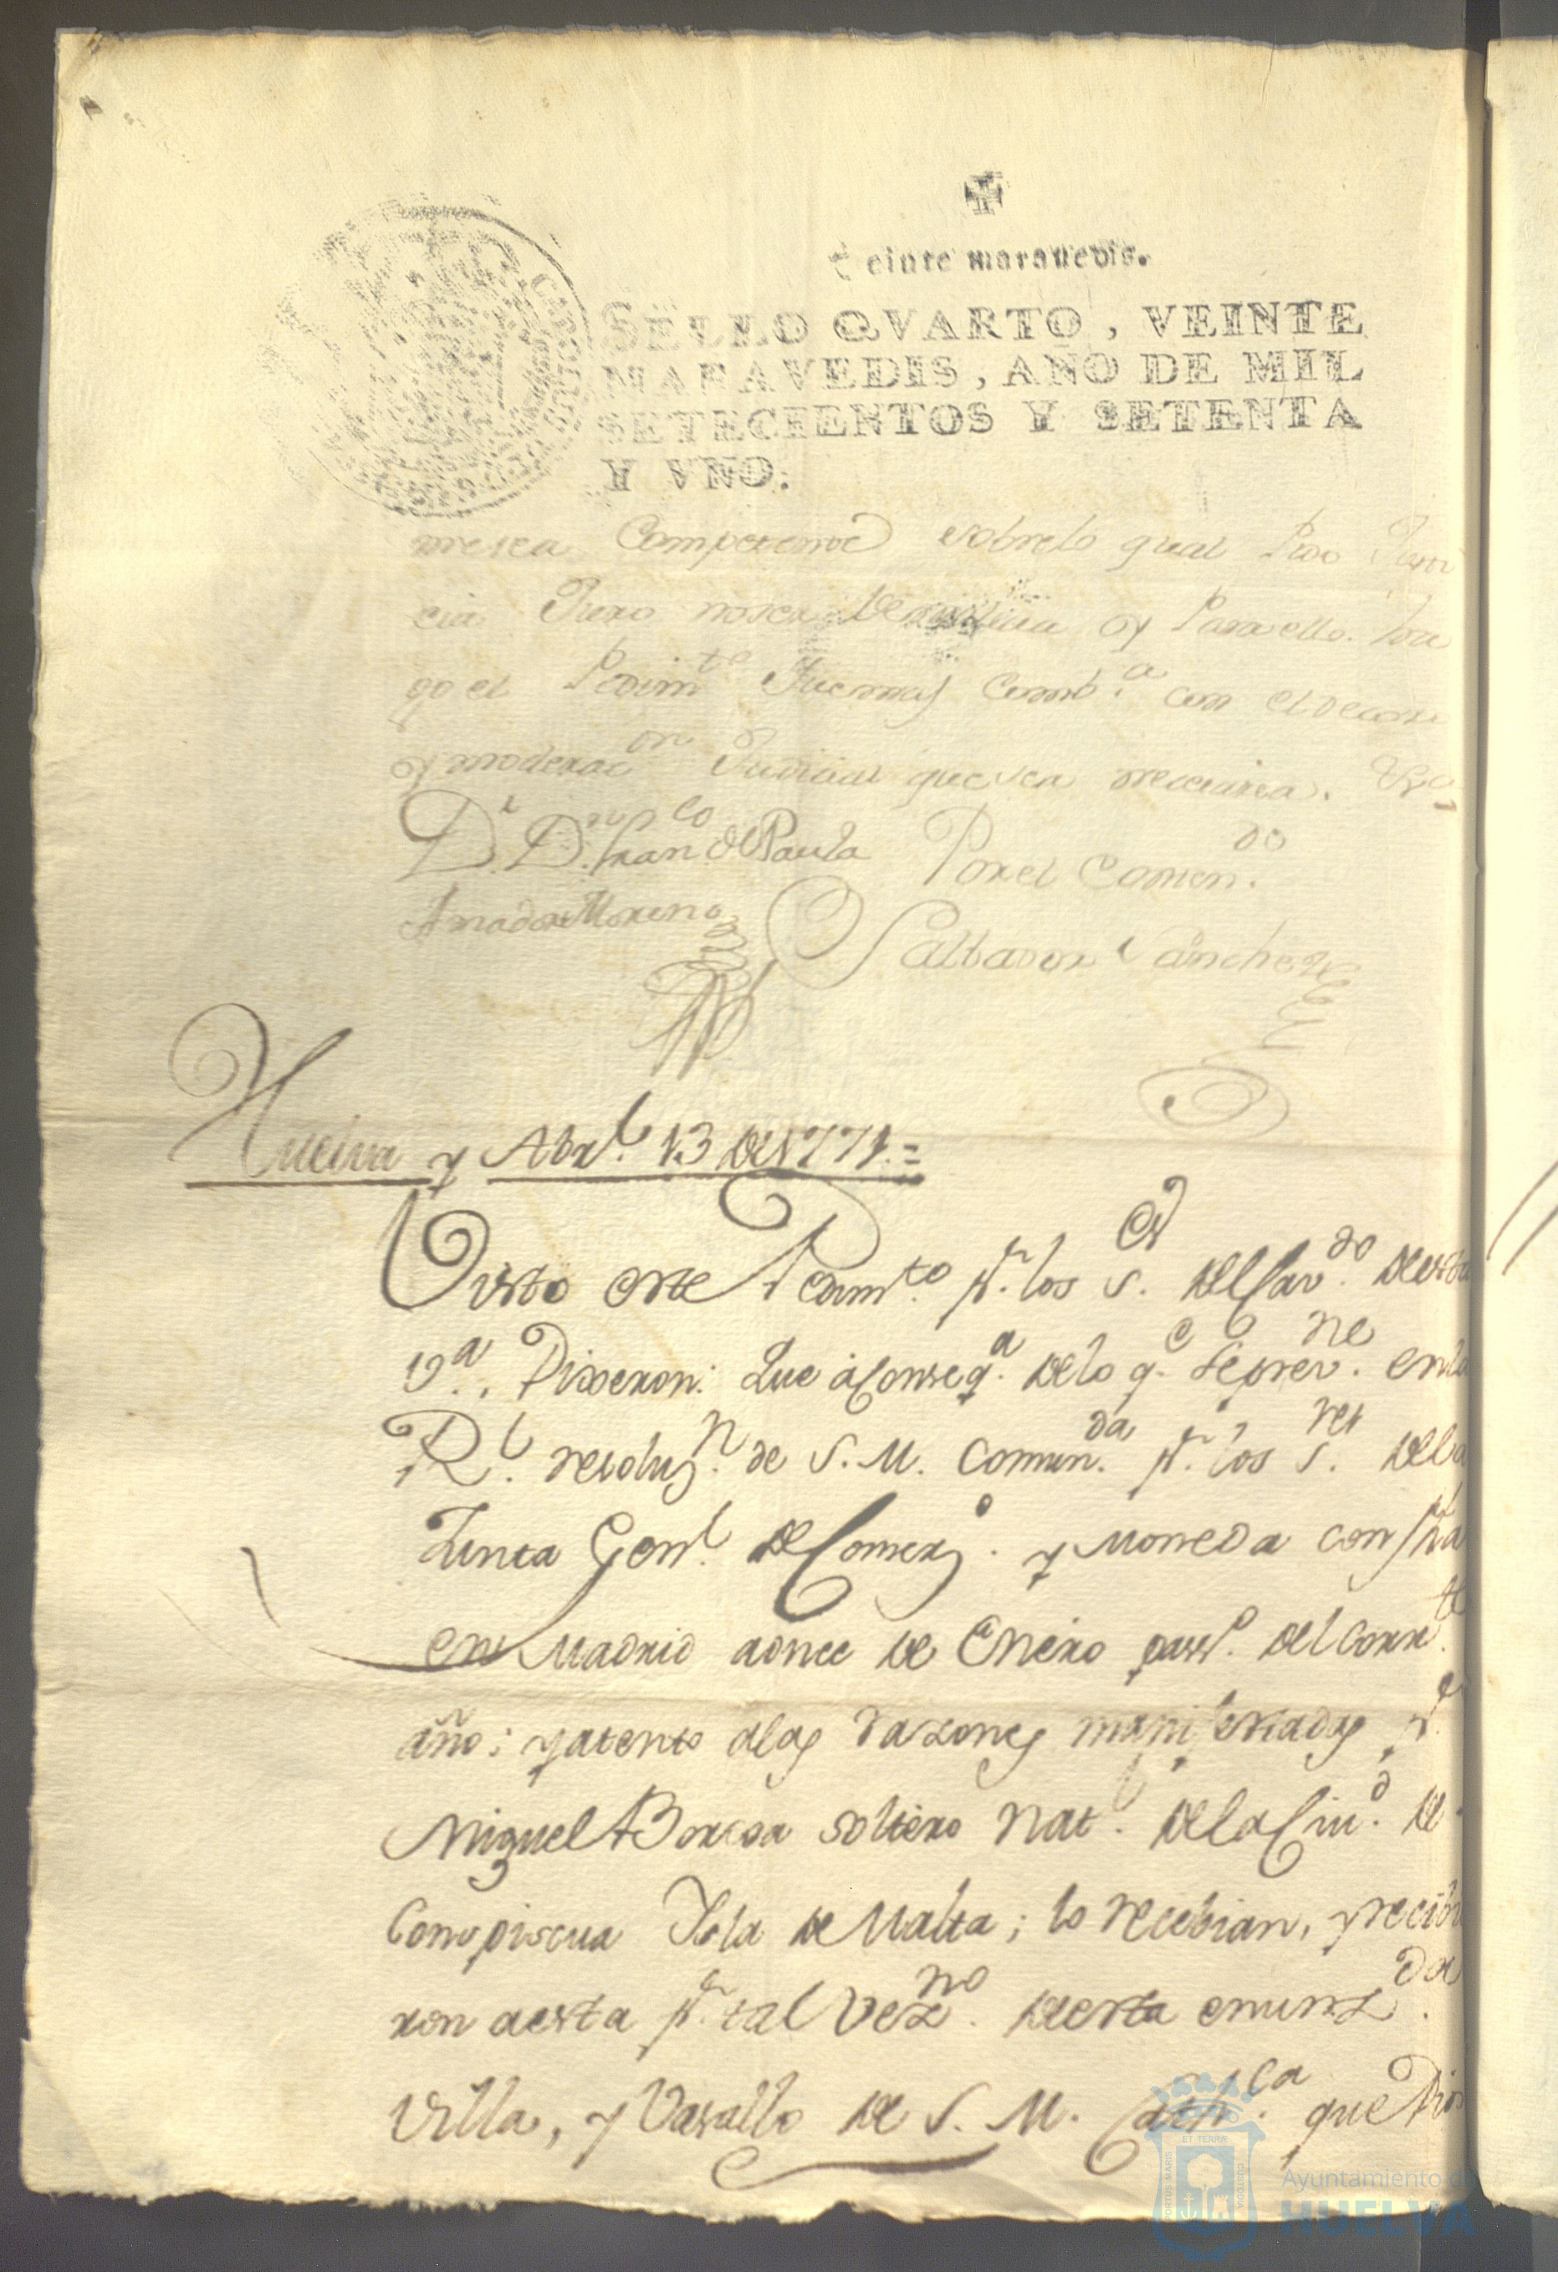 veinte maravedis.
SELLO QVARTO, VEINTE
MARAVEDIS, AÑO DE MIL
SETECIENTOS Y SETENTA
Y VNO.
meresca Competente sobrelo qual Pido Justi
cia Juro nosea Demalicia y Paraello. ha
go el Pedimto
y moderacon Judicial quesea nececaria. Vo
Dr. Dn. Franco de Paula Por el Comendo.
Amador Moreno
Salbador Sanchez
Huelva y Abrl. 13 de 1771.=
Visto este Pedimto. pr. los S.es del Cavdo. desta
va., Dixeron: Que a Conseqa. delo qe. se prevne. enla
Rl. resoluzn. de S. M. Comunda. pr. los Sres. dela
Junta Genl. de Comerzo. y Moneda con fha
en Madrid aonce de Enero passo. del Corrte.
año; y atento alas razones manifestadas pr.
Miguel Borcoa soltero Natl. de la Ciud. de
Conspiscua Isla de Malta; lo recebian, y recibie
ron aesta pr. tal Vezno. desta enunzda.
Villa, y Vasallo de S. M. Cathca. que Dios
PORTUS MARIS ET TERRÆ CUSTODIA
Ayuntamiento de
HUELVA